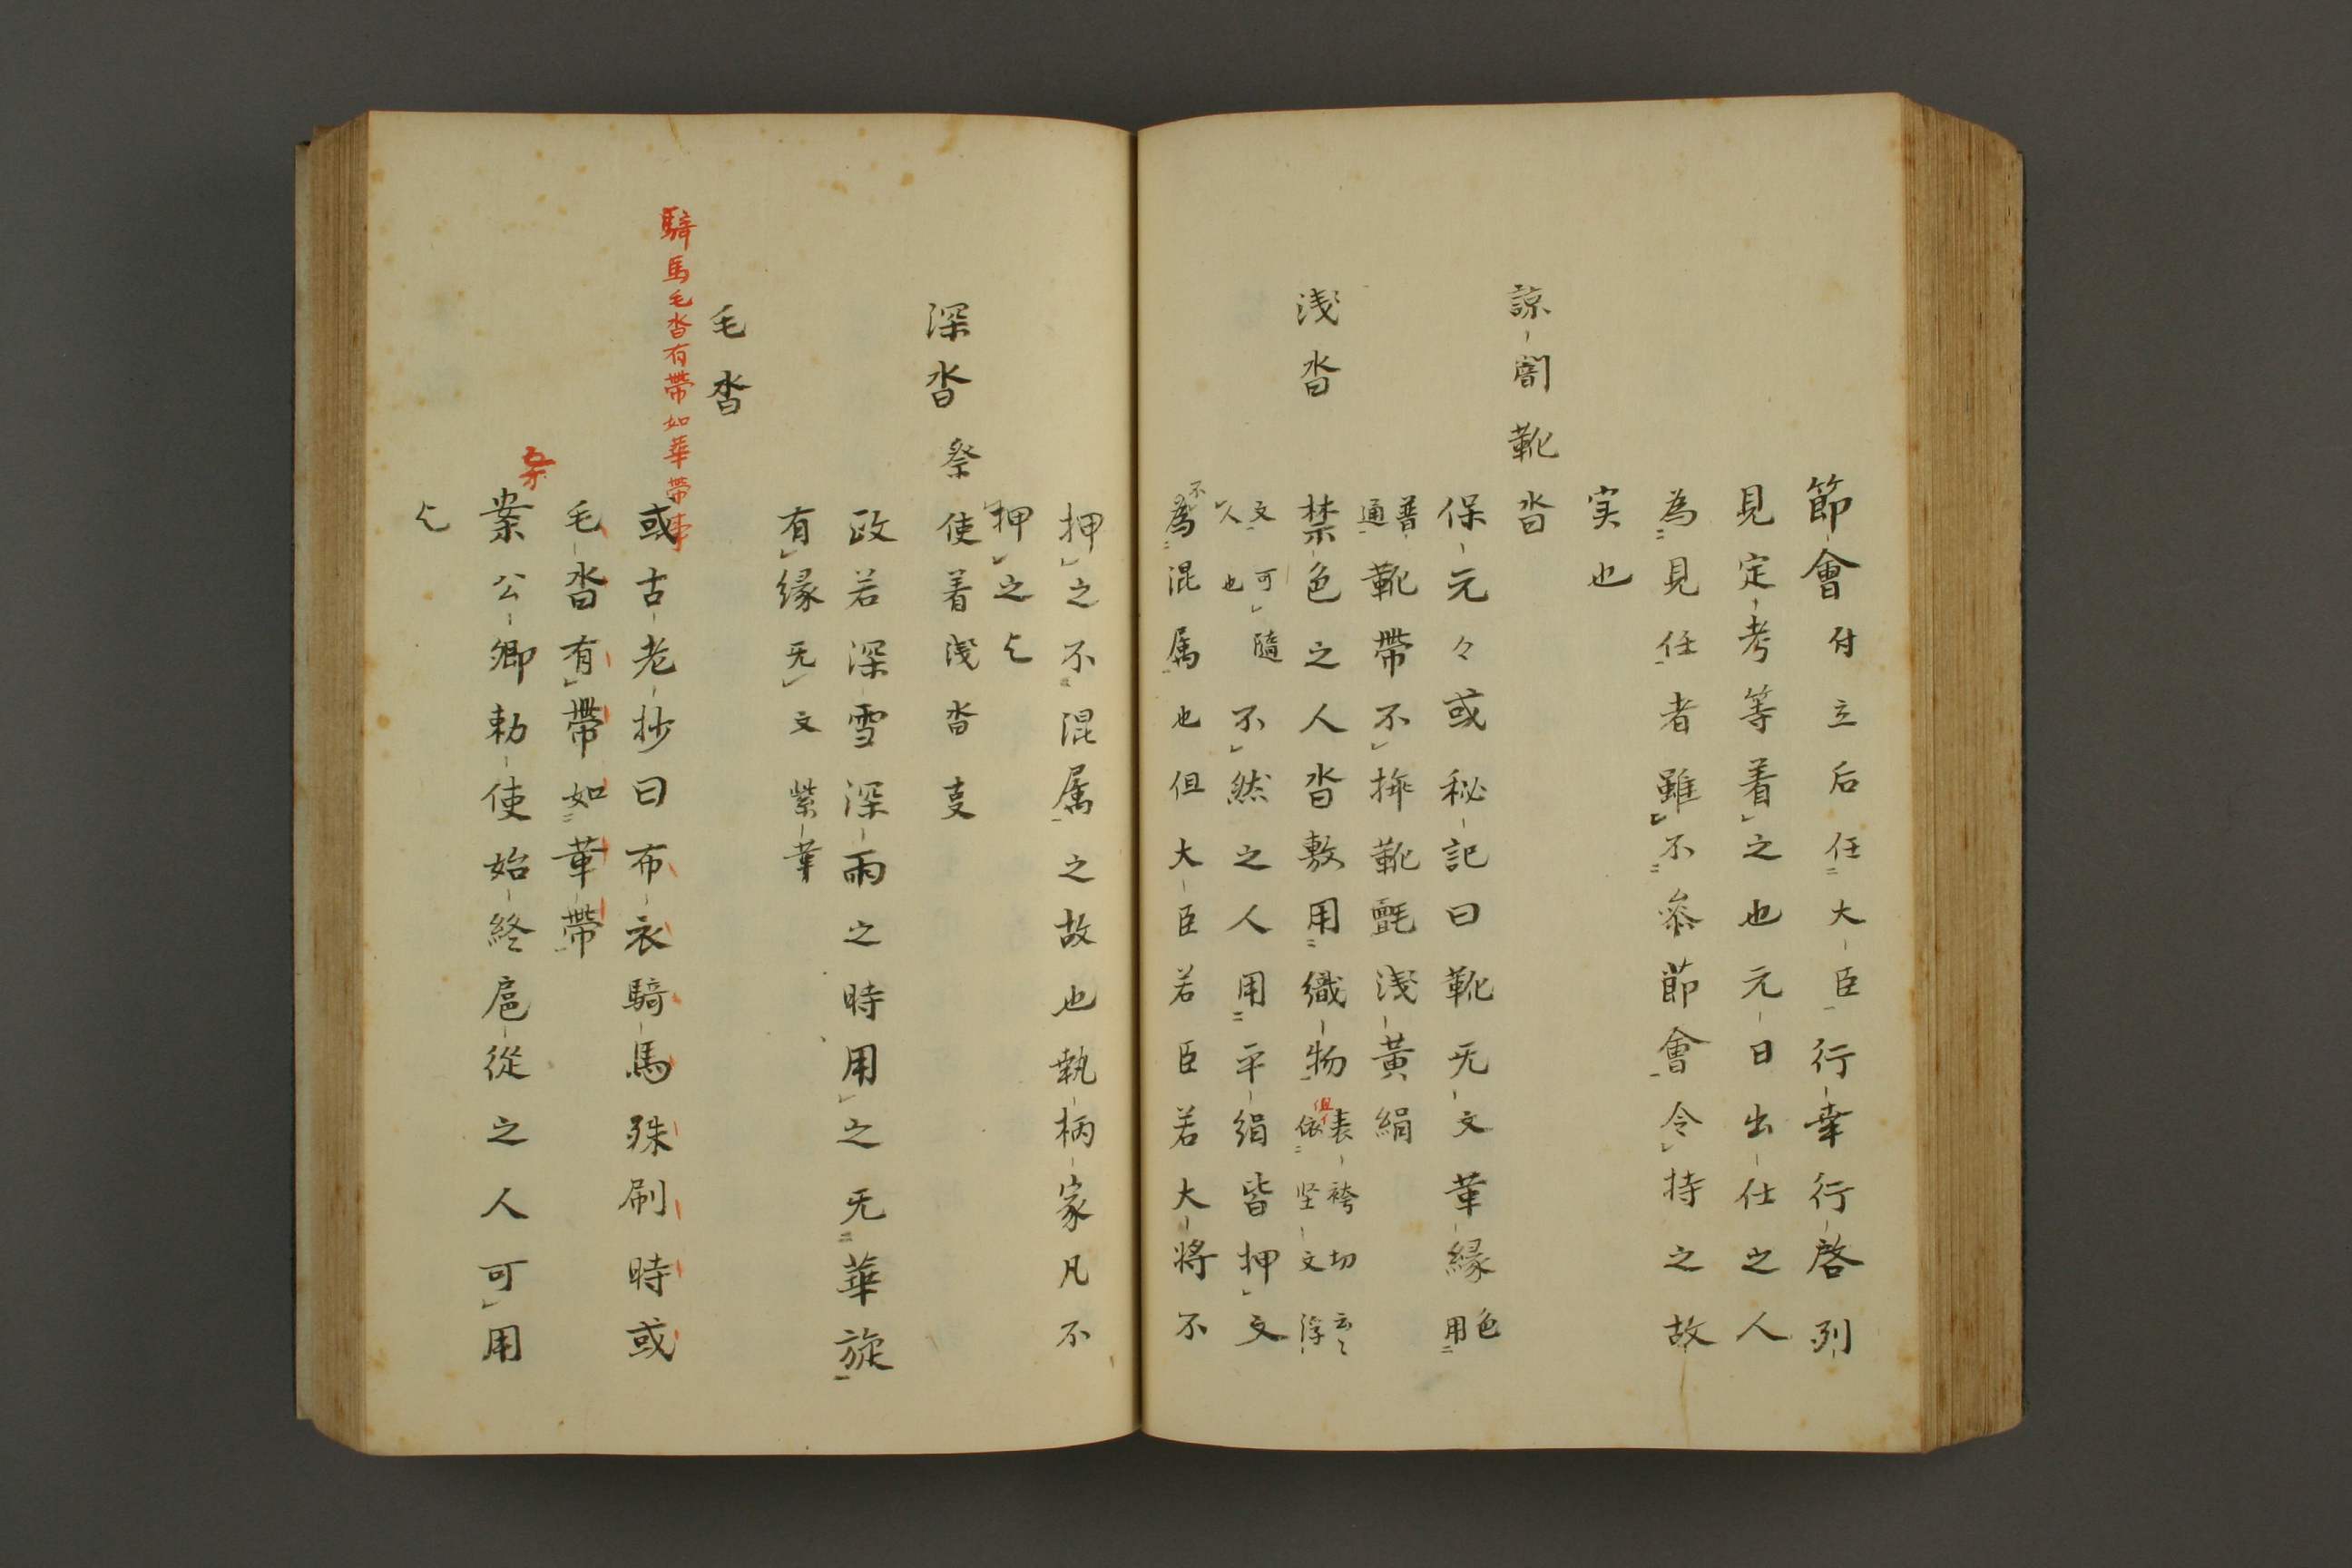 節會付立后任大臣行幸行啓列
見定考等着之也元日出仕之人
為見任者雖不参節會令持之故
実也
諒闇靴沓
保元々或秘記曰靴无文革縁色用
普通靴帯不擁靴氈浅黄絹
浅沓
禁色之人沓敷用織物表袴切云々
但依竪文浮
文可随
久也
不然之人用平絹皆押文
不為混属也但大臣若臣若大将不
押之不混属之故也執柄家凡不
押之乞
深沓
祭使着浅沓支
政若深雪深雨之時用之无華旋
有縁无文紫革
毛沓
騎馬毛沓有帯如華帯事
或古老抄曰布衣騎馬殊刷時或
毛沓有帯如革帯
案
案公卿勅使始終扈從之人可用
乞